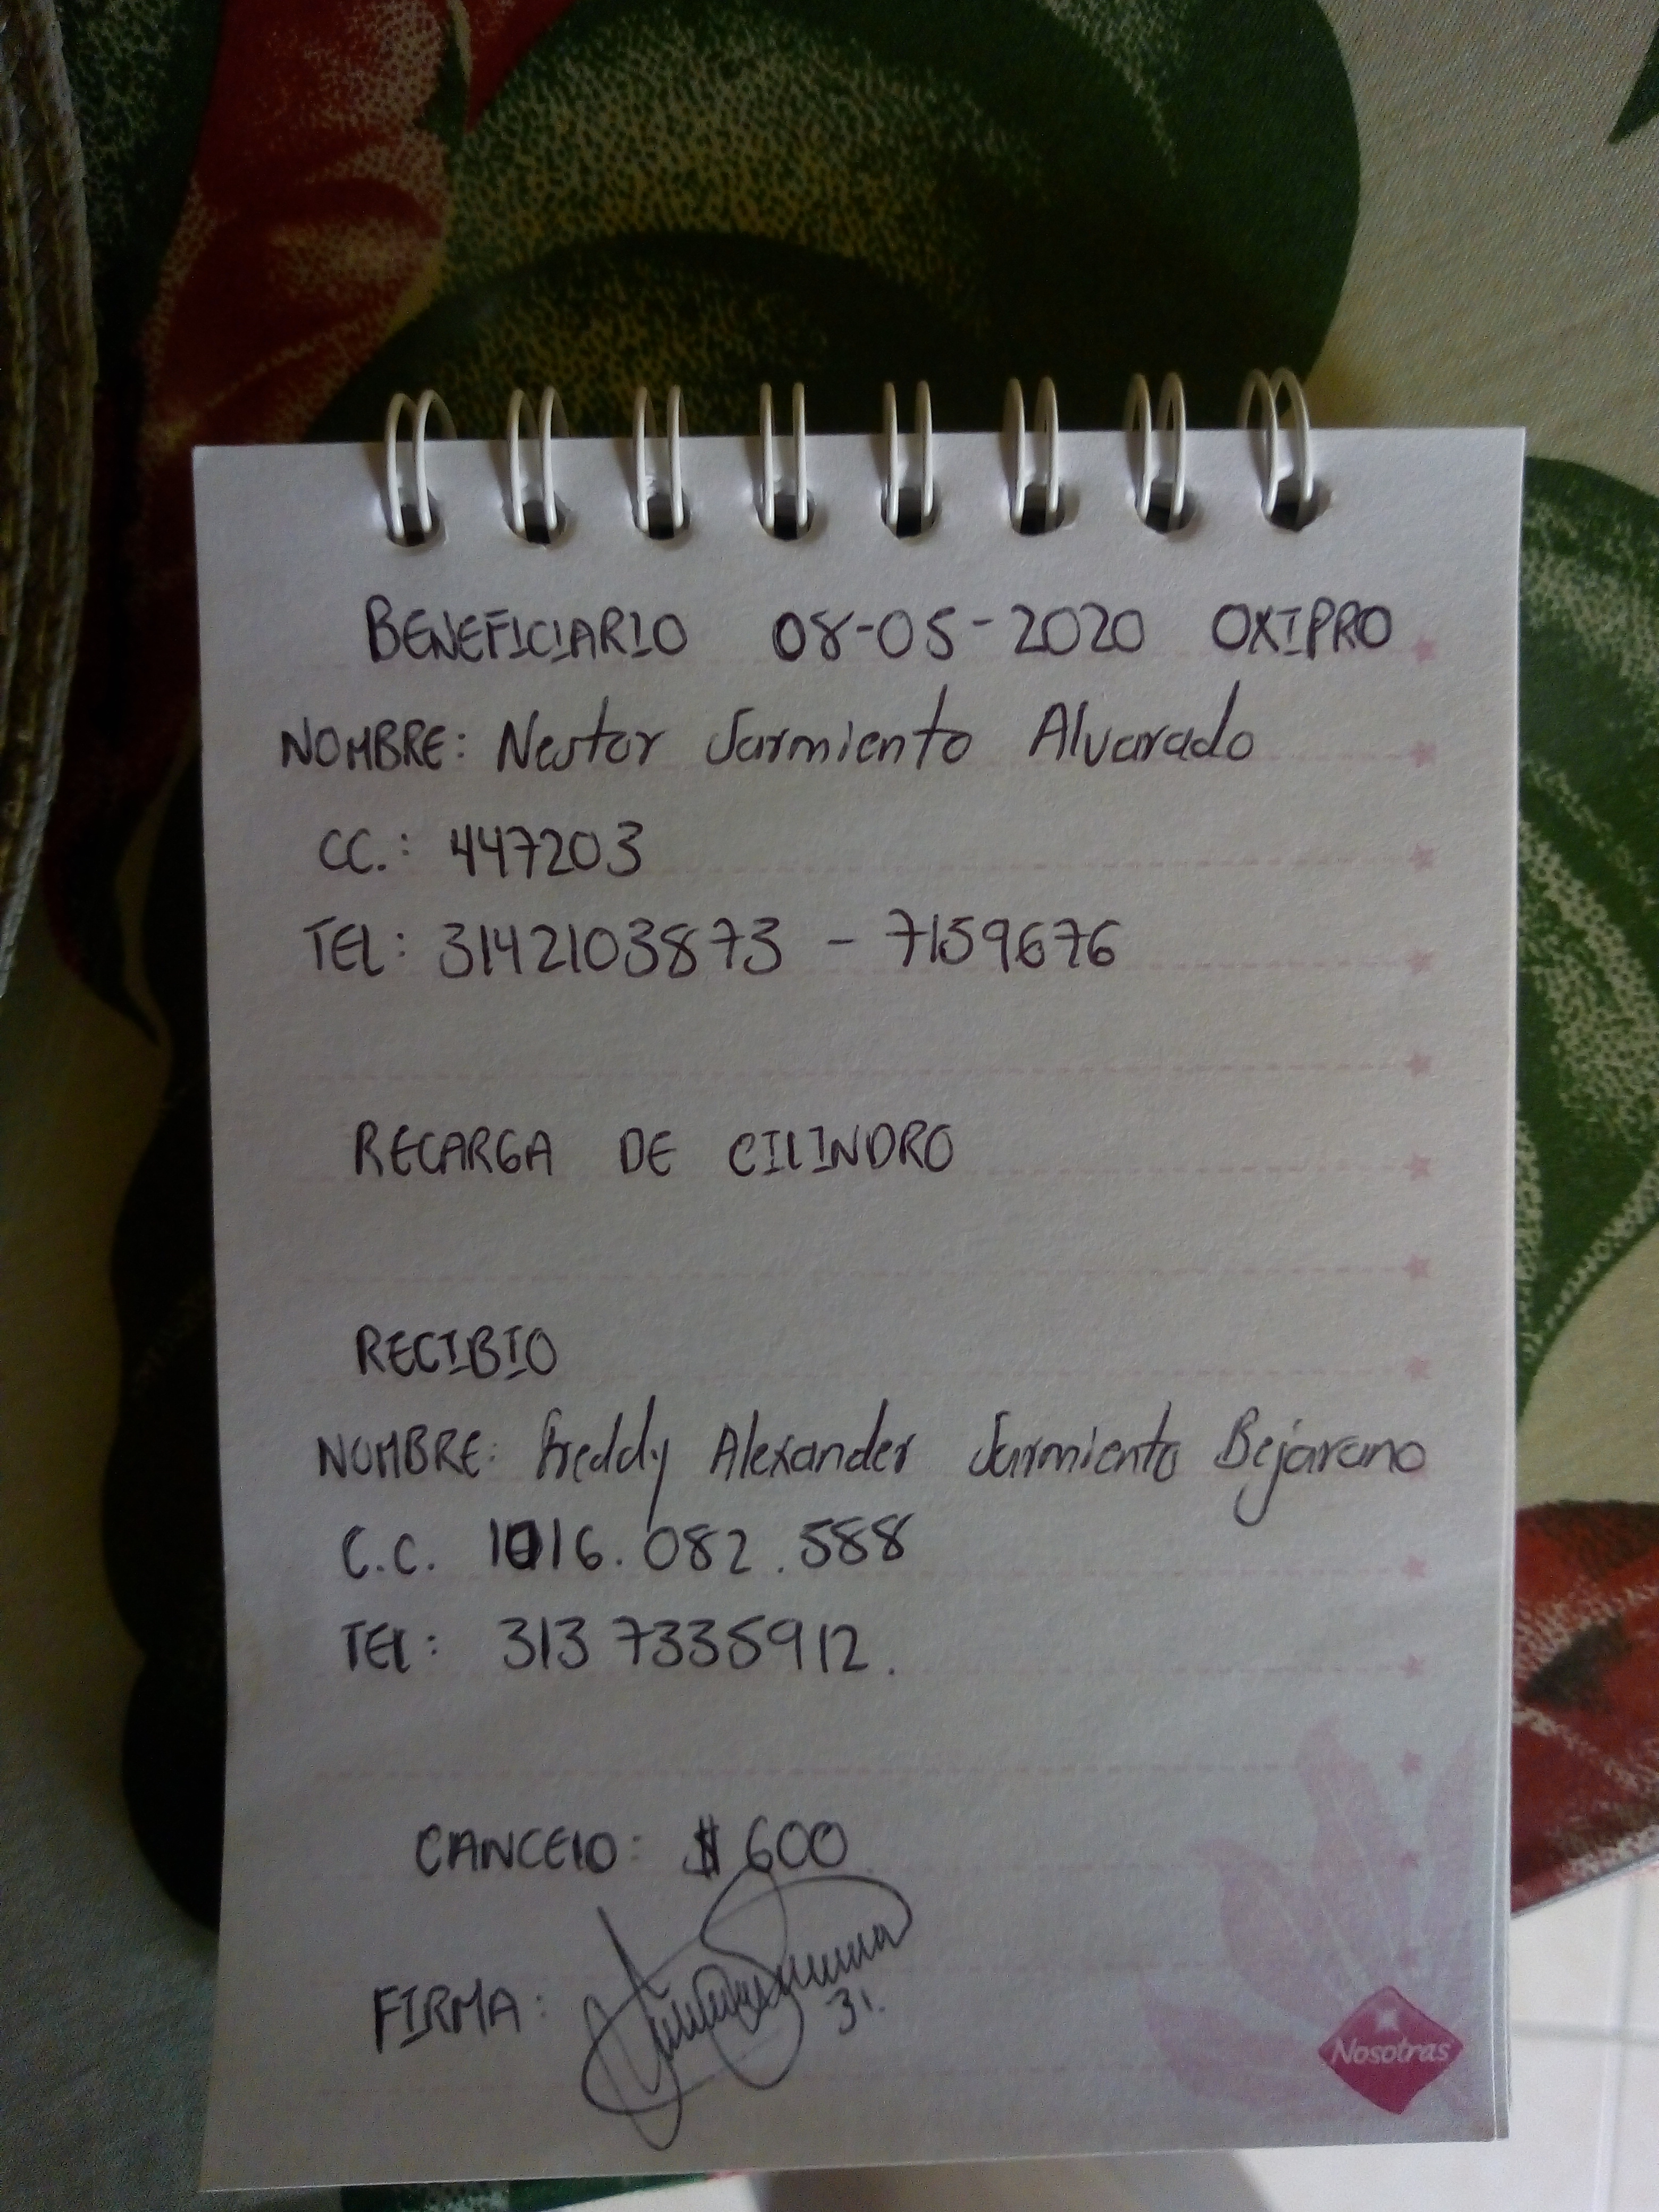 BENEFICIARIO 08-05-2020 OXIPRO
NOMBRE: Nestor Sarmiento Alvarado
CC.: 447203
TEL: 3142103873 - 7159676
RECARGA DE CILINDRO
RECIBIO
NOMBRE: Freddy Alexander Sarmiento Bejarano
C.C. 1016.082.588
TEL: 313 7335912.
CANCELO: $ 600
FIRMA:
31.
Nosotras